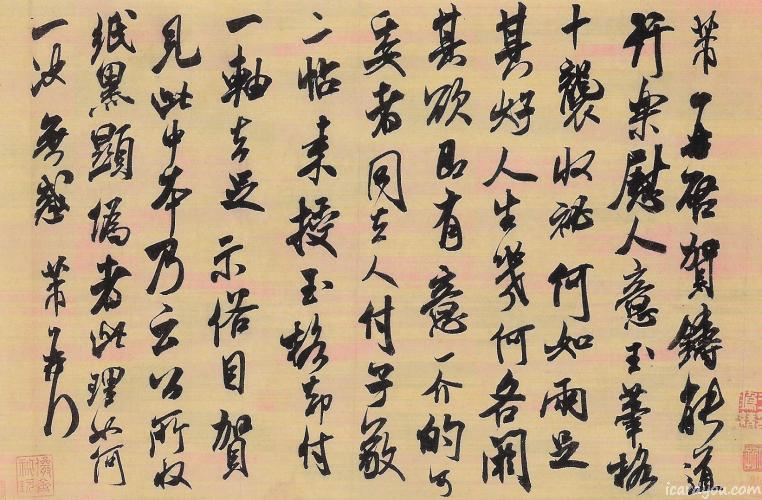 芾頓首啓賀鑄能道
行樂慰人意玉筆格
十襲收祕何如兩足
其好人生幾何各闕
其欲即有意一介的可
委者同去人付子敬
二帖來授玉格却付
一軸去足示俗目賀
見此中本乃云公所收
紙黑顯偽者此理如何
一決無惑芾頓首
icarayou.com